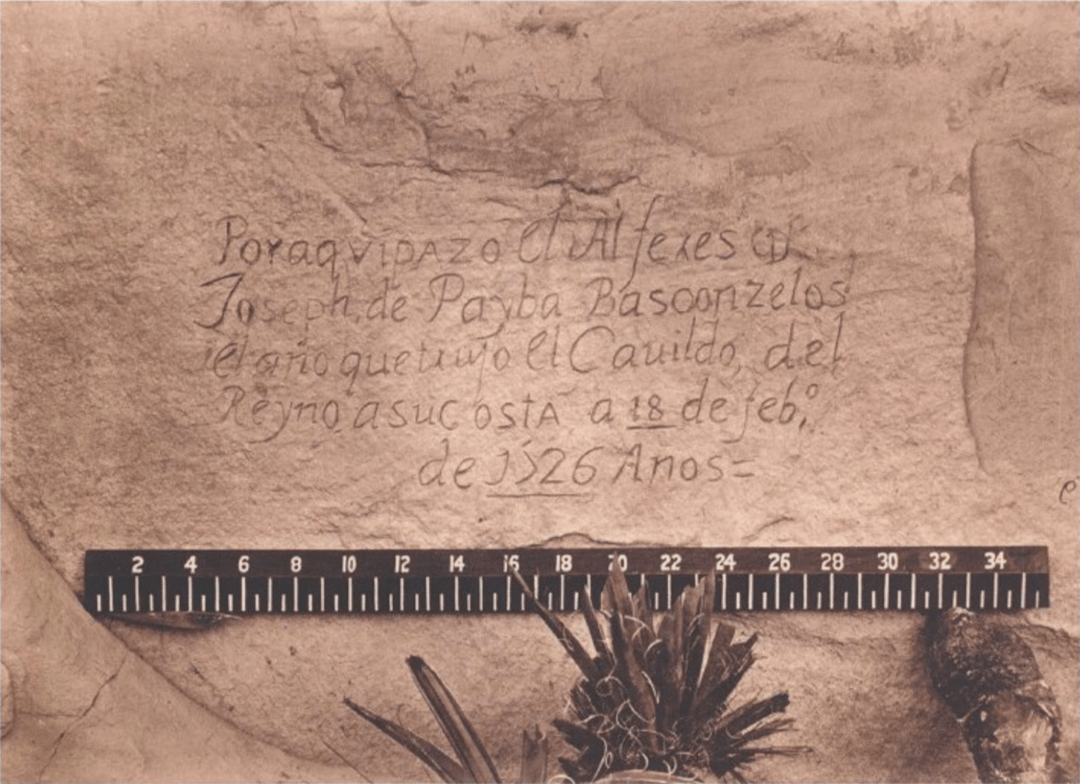 PoraqvipAzo el Alferes Dn
Joseph de Payba Basconzelos
el año quetrujo el Cauildo, del
Reyno asuCostA a 18 de feb,º
de 1526 Años=
e
2 4 6 8 10 12 14 16 18 20 22 24 26 28 30 32 34